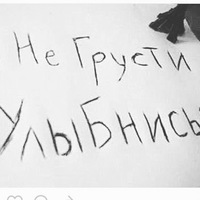 Не Грусти
УлыБнись